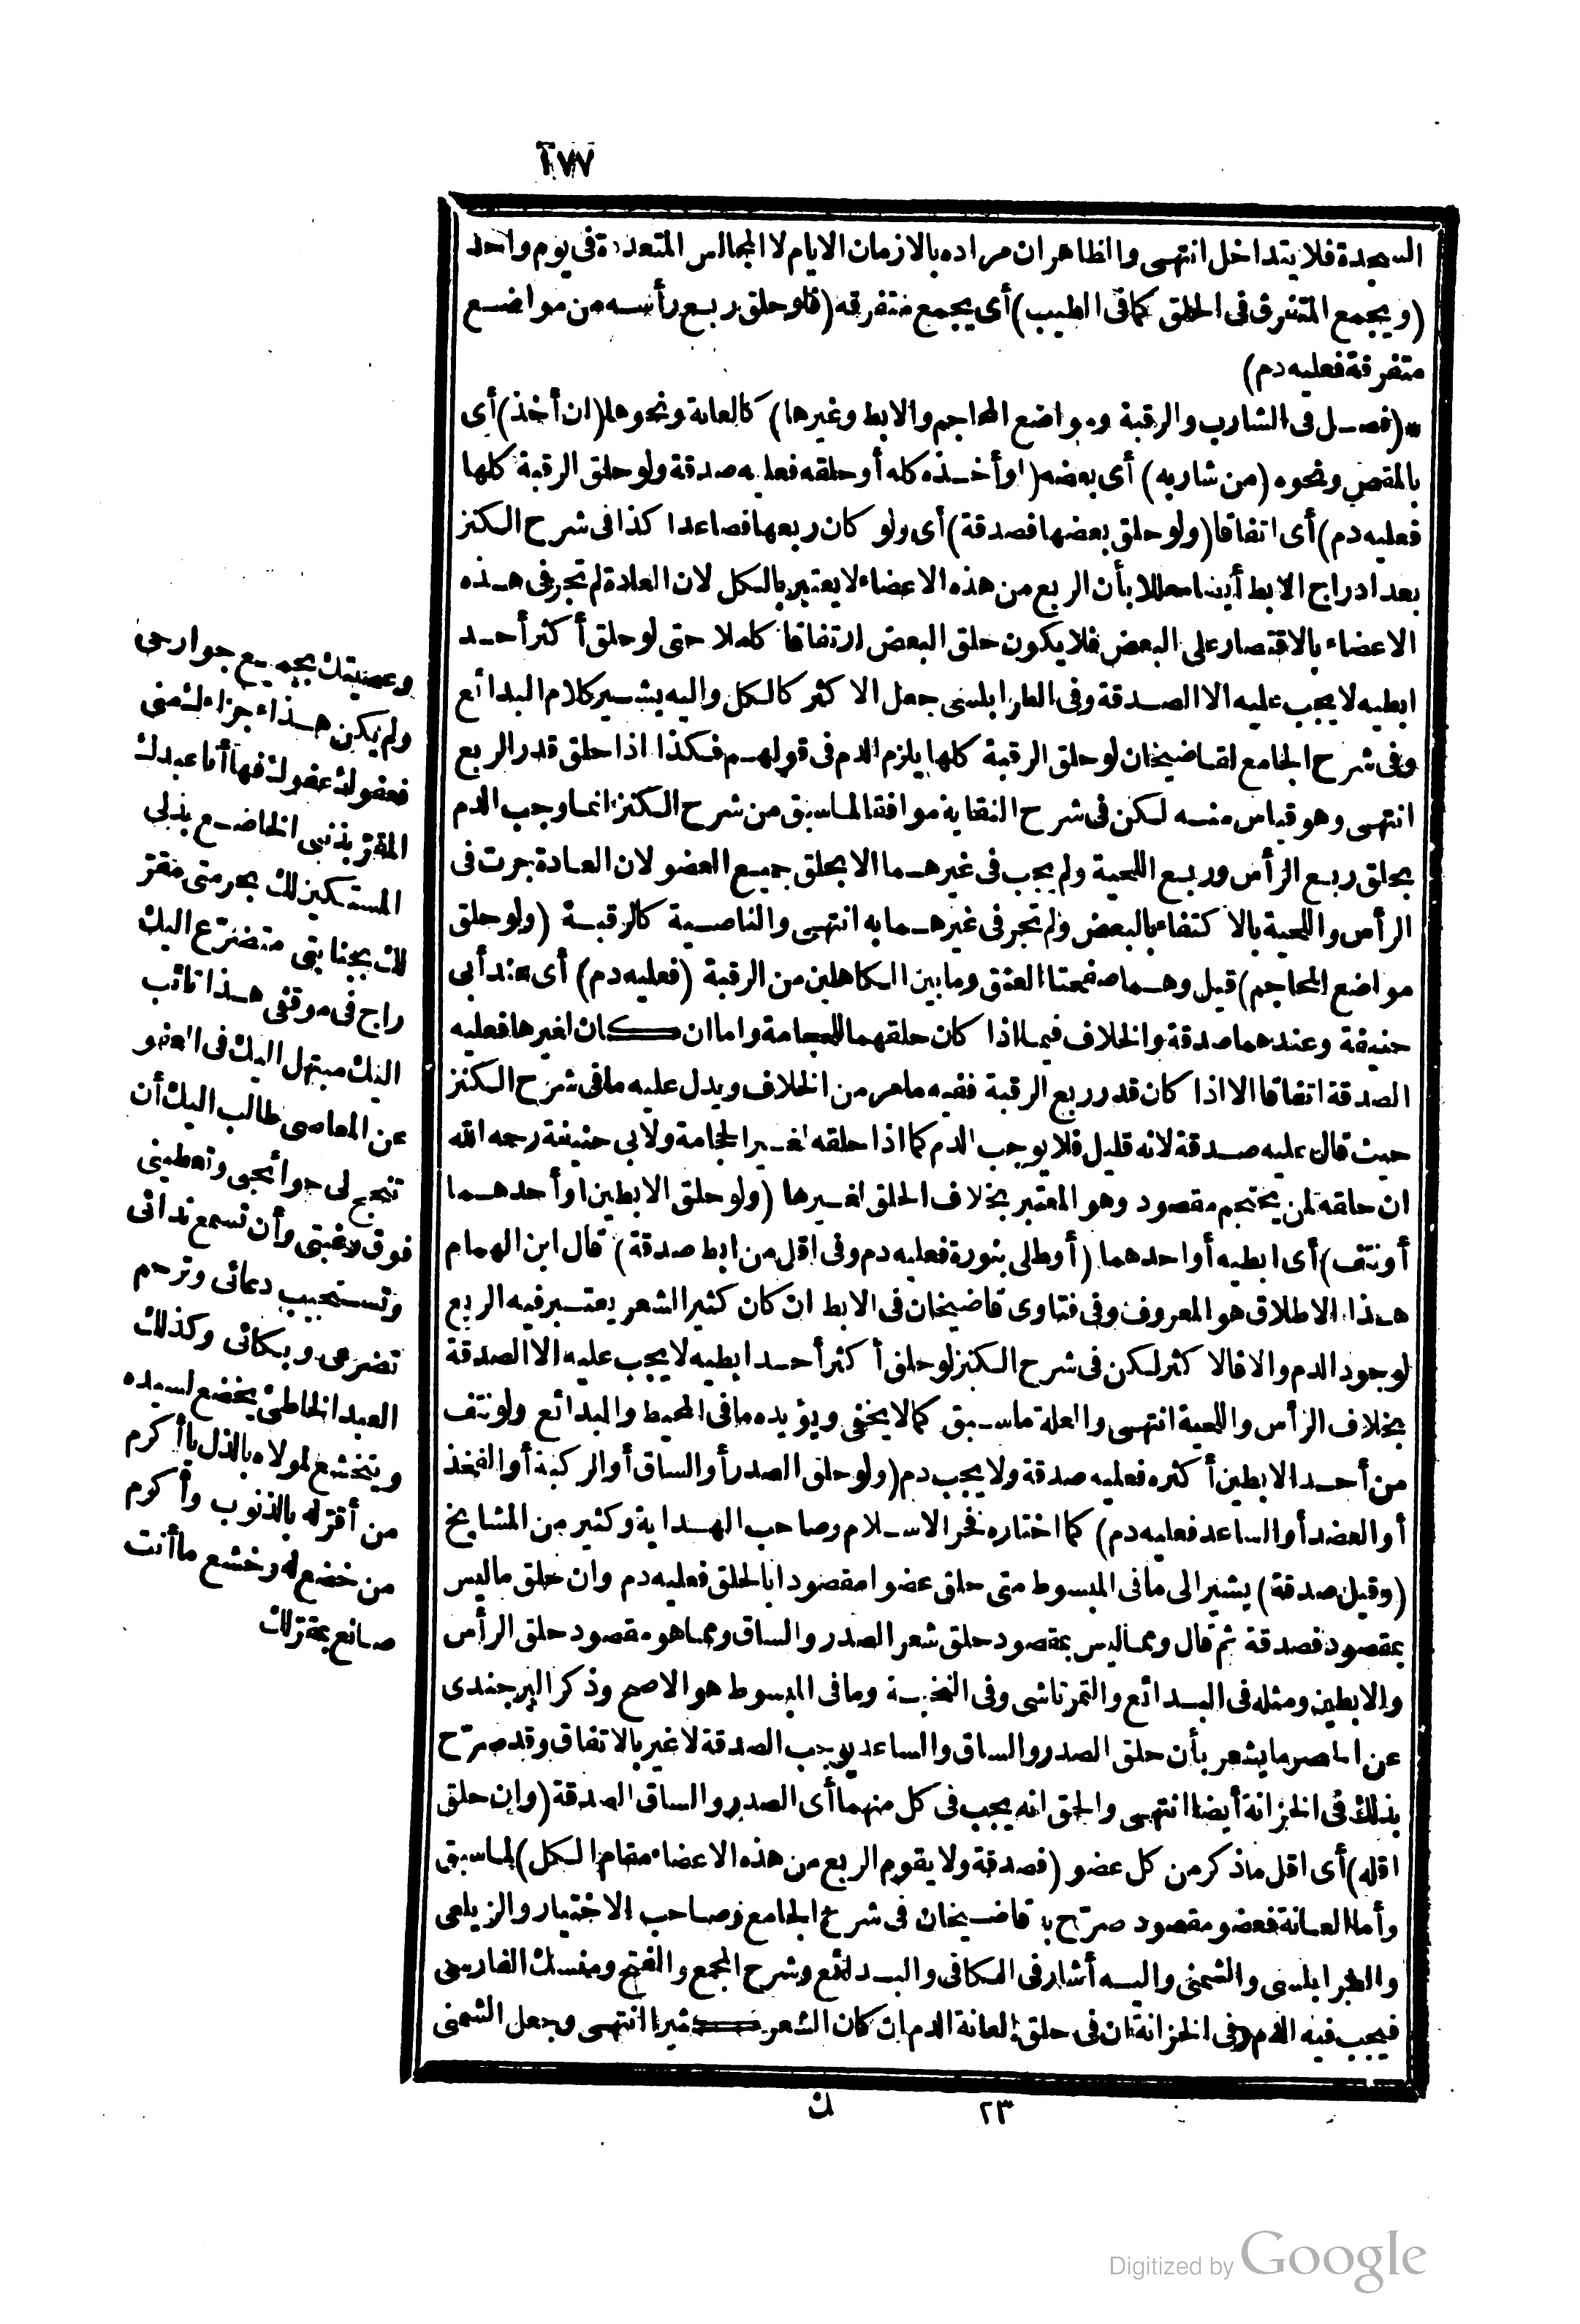 ١٧٧
السجدة فلا يتداخل انتهى والظاهر ان مراده بالازمان الايام لا المجالس المتعددة فى يوم واحد
(ويجمع المتفرق فى الحلق كما فى الطيب) أى يجمع متفرقه (فلو حلق ربع رأسه من مواضع
متفرقة فعليه دم)
* (فصل فى الشارب والرقبة ومواضع المحاجم والابط وغيرها) كالعانة ونحوها (ان أخذ) أى
بالمقص ونحوه (من شاربه) أى بعضه (اوأخذه كله أوحلقه فعليه صدقة ولو حلق الرقبة كلها
فعليه دم) أى اتفاقا (ولو حلق بعضها فصدقة) أى ولو كان ربعها فصاعدا كذا فى شرح الكنز
بعد ادراج الابط أيضا معللا بأن الربع من هذه الاعضاء لا يعتبر بالكل لان العادة لم تجر فى هذه
الاعضاء بالاقتصار على البعض فلا يكون حلق البعض ارتفاقا كاملا حتى لو حلق أكثر أحد
ابطيه لا يجب عليه الا الصدقة وفى الطرابلسى جعل الاكثر كالكل واليه يشير كلام البدائع
وفى شرح الجامع لقاضيخان لو حلق الرقبة كلها يلزم الدم فى قولهم فكذا اذا حلق قدر الربع
انتهى وهو قياس منه لكن فى شرح النقاية موافقا لما سبق من شرح الكنز انما وجب الدم
بحلق ربع الرأس وربع اللحية ولم يجب فى غيرهما الا بحلق جميع العضو لان العادة جرت فى
الرأس واللحية بالاكتفاء بالبعض ولم تجر فى غيرهما به انتهى والناصية كالرقبة (ولو حلق
مواضع المحاجم) قيل وهما صفحتا العنق وما بين الكاهلين من الرقبة (فعليه دم) أى عند أبى
حنيفة وعندهما صدقة والخلاف فيما اذا كان حلقهما للحجامة واما ان كان لغيرها فعليه
الصدقة اتفاقا الا اذا كان قدر ربع الرقبة ففيه ما مر من الخلاف ويدل عليه ما فى شرح الكنز
حيث قال عليه صدقة لانه قليل فلا يوجب الدم كما اذا حلقه لغير الحجامة ولابى حنيفة رحمه الله
ان حلقه لمن يحتجم مقصود وهو المعتبر بخلاف الحلق لغيرها (ولو حلق الابطين اوأحدهما
أونتف) أى ابطيه أواحدهما (أوطلى بنورة فعليه دم وفى اقل من ابط صدقة) قال ابن الهمام
هذا الاطلاق هو المعروف وفى فتاوى قاضيخان فى الابط ان كان كثير الشعر يعتبر فيه الربع
لوجود الدم والا فالاكثر لكن فى شرح الكنز لو حلق أكثر أحد ابطيه لا يجب عليه الا الصدقة
بخلاف الرأس واللحية انتهى والعلة ما سبق كما لا يخفى ويؤيده ما فى المحيط والبدائع ولو نتف
من أحد الابطين أكثره فعليه صدقة ولا يجب دم (ولو حلق الصدر أوالساق أوالركبة أوالفخذ
أوالعضد أوالساعد فعليه دم) كما اختاره فخر الاسلام وصاحب الهداية وكثير من المشايخ
(وقيل صدقة) يشير الى ما فى المبسوط متى حلق عضوا مقصودا بالحلق فعليه دم وان حلق ما ليس
بمقصود فصدقة ثم قال ومما ليس بمقصود حلق شعر الصدر والساق ومما هو مقصود حلق الرأس
والابطين ومثله فى البدائع والتمرتاشى وفى النخبة وما فى المبسوط هو الاصح وذكر البرجندى
عن الناصر ما يشعر بأن حلق الصدر والساق والساعد يوجب الصدقة لا غير بالاتفاق وقد صرّح
بذلك فى الخزانة أيضا انتهى والحق انه يجب فى كل منهما أى الصدر والساق الصدقة (وان حلق
اقله) أى اقل ما ذكر من كل عضو (فصدقة ولا يقوم الربع من هذه الاعضاء مقام الكل) لما سبق
وأما العانة فعضو مقصود صرّح به قاضيخان فى شرح الجامع وصاحب الاختيار والزيلعى
والطرابلسى والشمنى واليه أشار فى الكافى والبدائع وشرح المجمع والفتح ومنسك الفارسى
فيجب فيه الدم وفى الخزانة ان فى حلق العانة الدم ان كان الشعر كثيرا انتهى وجعل الشمنى
وعصيتك بجميع جوارحى
ولم يكن هذاء جزاءك منى
فعفوك عفوك فها أنا عبدك
المقرّ بذنبى الخاضع بذلى
المستكين لك بجرمتى مقرّ
لك بجنايتى متضرّع اليك
راج فى موقفى هذا تائب
اليك مبتهل اليك فى العفو
عن المعاصى طالب اليك أن
تنجح لى حوائجى وتعطينى
فوق رغبتى وأن تسمع ندائى
وتستجيب دعائى وترحم
تضرعى وبكائى وكذلك
العبد الخاطئ يخضع لسيده
ويتخشع لمولاه بالذل يا أكرم
من أقرّ له بالذنوب وأكرم
من خضع له وخشع ما أنت
صانع بمقرّ لك
٢٣
ك
Digitized by Google